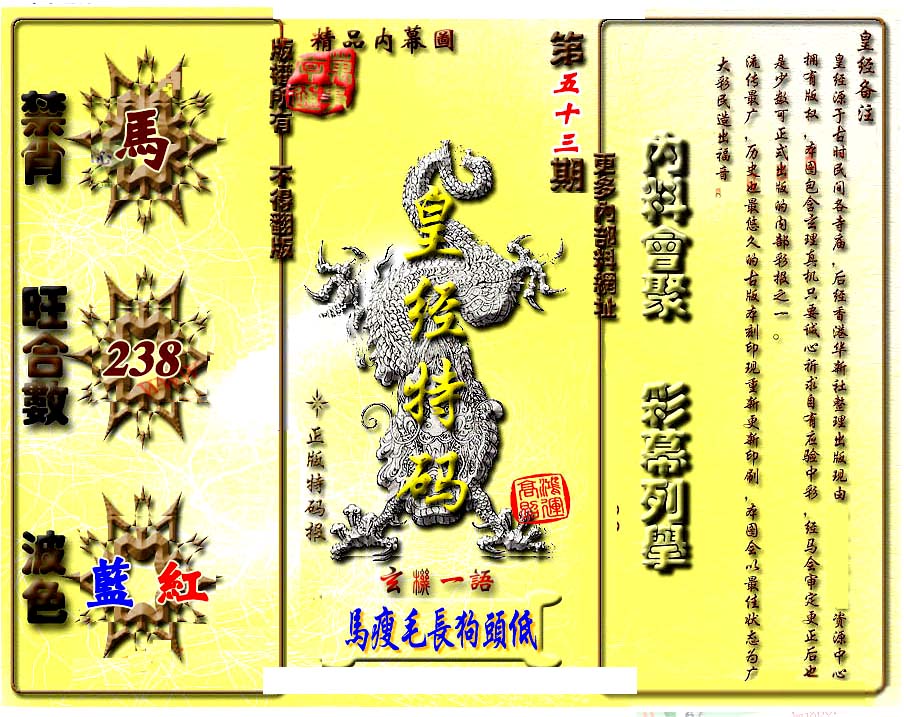 皇经备注
皇经源于古时民间各寺庙，后经香港华新社整理出版现由
资源中心
拥有版权，本图包含玄理真机只要诚心祈求自有应验中彩，经马会审定更正后也
是少数可正式出版的内部彩报之一。
流传最广，历史也最悠久的古版本刻印现重新更新印刷，本图会以最佳状态为广
大彩民造出福音
内料會聚
彩幕列擧
更多內部料網址
精品內幕圖
第五十三期
皇经特码
正版特码报
鴻運
高照
玄機一語
馬瘦毛長狗頭低
版權所有
不得翻版
禁肖
馬
旺合數
238
波色
藍 紅